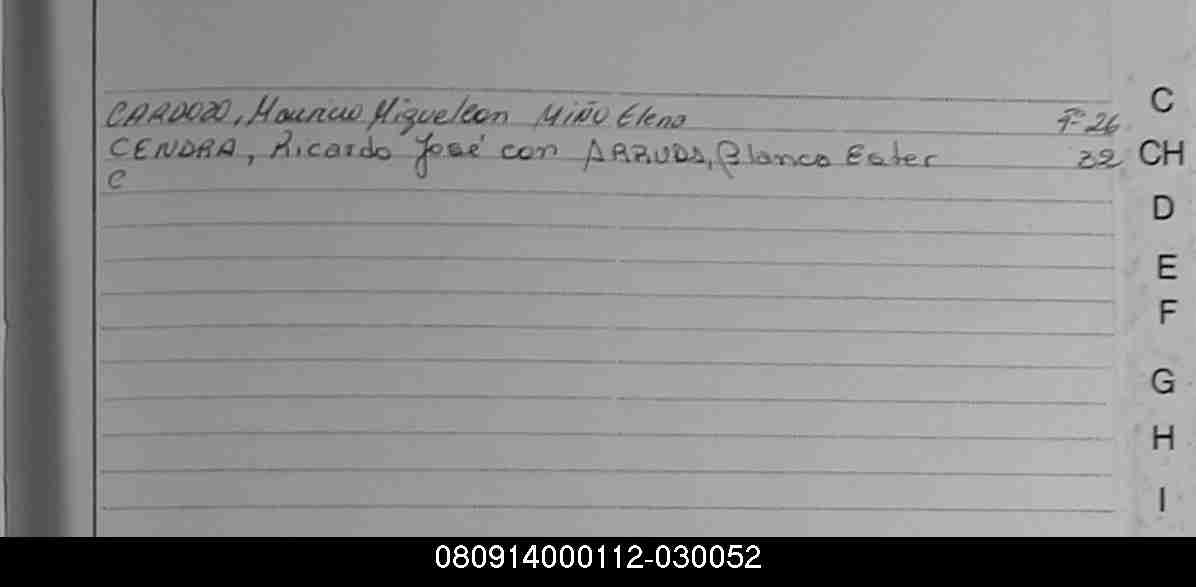 CARDOZO, Mauricio Miguel con MIÑO Elena Fº 26
CENDRA, Ricardo José con ARRUDA, Blanca Ester 32
C
C
CH
D
E
F
G
H
I
080914000112-030052